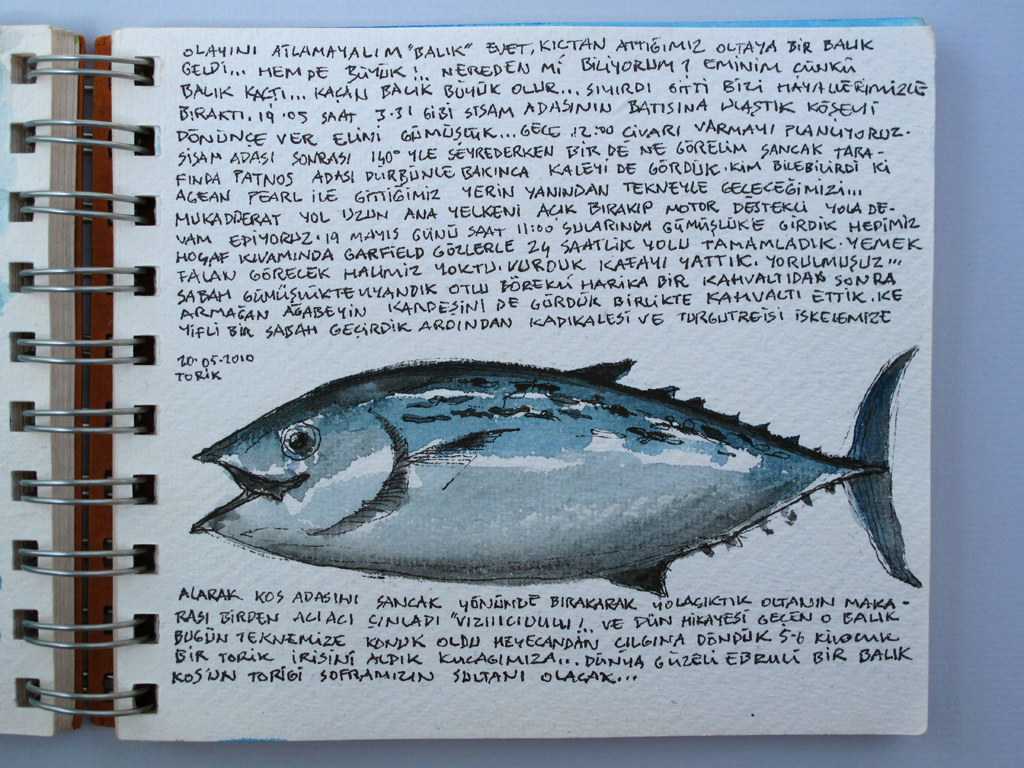 OLAYINI ATLAMAYALIM "BALIK" EVET, KIÇTAN ATTIĞIMIZ OLTAYA BİR BALIK
GELDİ... HEM DE BÜYÜK!.. NEREDEN Mİ BİLİYORUM? EMİNİM ÇÜNKÜ
BALIK KAÇTI... KAÇAN BALIK BÜYÜK OLUR... SIYIRDI GİTTİ BİZİ HAYALLERİMİZLE
BIRAKTI. 19.05 SAAT 3.31 GİBİ SİSAM ADASININ BATISINA ULAŞTIK KÖŞEYİ
DÖNÜNCE VER ELİNİ GÜMÜŞLÜK... GECE 12:00 CİVARI VARMAYI PLANLIYORUZ.
SİSAM ADASI SONRASI 140° YLE SEYREDERKEN BİR DE NE GÖRELİM SANCAK TARA-
FINDA PATNOS ADASI DÜRBÜNLE BAKINCA KALEYİ DE GÖRDÜK. KİM BİLEBİLİRDİ Kİ
AGEAN PEARL İLE GİTTİĞİMİZ YERİN YANINDAN TEKNEYLE GEÇECEĞİMİZİ...
MUKADDERAT YOL UZUN ANA YELKENİ AÇIK BIRAKIP MOTOR DESTEKLİ YOLA DE-
VAM EDİYORUZ. 19 MAYIS GÜNÜ SAAT 11:00 SULARINDA GÜMÜŞLÜK'E GİRDİK HEPİMİZ
HOŞAF KIVAMINDA GARFIELD GÖZLERLE 24 SAATLİK YOLU TAMAMLADIK. YEMEK
FALAN GÖRECEK HALİMİZ YOKTU. VURDUK KAFAYI YATTIK. YORULMUŞUZ...
SABAH GÜMÜŞLÜKTE UYANDIK OTLU BÖREKLİ HARİKA BİR KAHVALTIDAN SONRA
ARMAĞAN AĞABEYİN KARDEŞİNİ DE GÖRDÜK BİRLİKTE KAHVALTI ETTİK. KE
YİFLİ BİR SABAH GEÇİRDİK ARDINDAN KADIKALESİ VE TURGUTREİSİ İSKELEMİZE
20.05.2010
TORİK
ALARAK KOS ADASINI SANCAK YÖNÜNDE BIRAKARAK YOLAÇIKTIK OLTANIN MAKA-
RASI BİRDEN ACI ACI ÇINLADI "VIZIIICIUUUU!.. VE DÜN HİKAYESİ GEÇEN O BALIK
BUGÜN TEKNEMİZE KONUK OLDU HEYECANDAN ÇILGINA DÖNDÜK 5-6 KİLOCUK
BİR TORİK İRİSİNİ ALDIK KUCAĞIMIZA... DÜNYA GÜZELİ EBRULİ BİR BALIK
KOS'UN TORİĞİ SOFRAMIZIN SULTANI OLACAK...